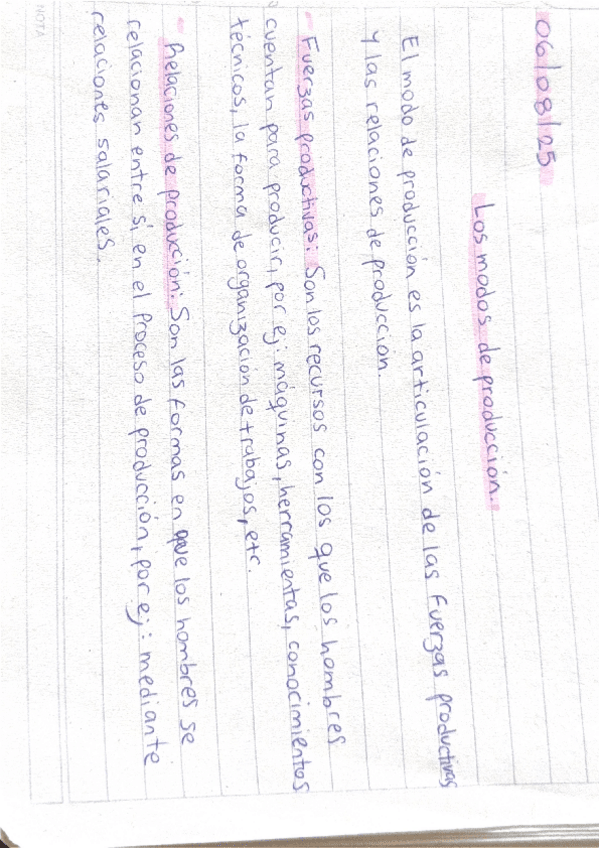 NOTA
06/08/25
Los modos de producción.
El modo de producción es la articulación de las fuerzas productivas
y las relaciones de producción.
- Fuerzas productivas: Son los recursos con los que los hombres
cuentan para producir, por ej: máquinas, herramientas, conocimientos
técnicos, la forma de organización de trabajos, etc.
- Relaciones de producción: Son las formas en que los hombres se
relacionan entre sí, en el Proceso de producción, por ej: mediante
relaciones salariales.